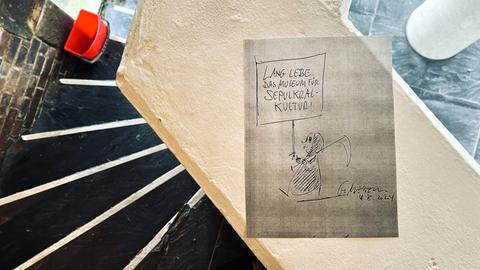 LANG LEBE
DAS MUSEUM FÜR
SEPULKRAL-
KULTUR!
4.8.2024